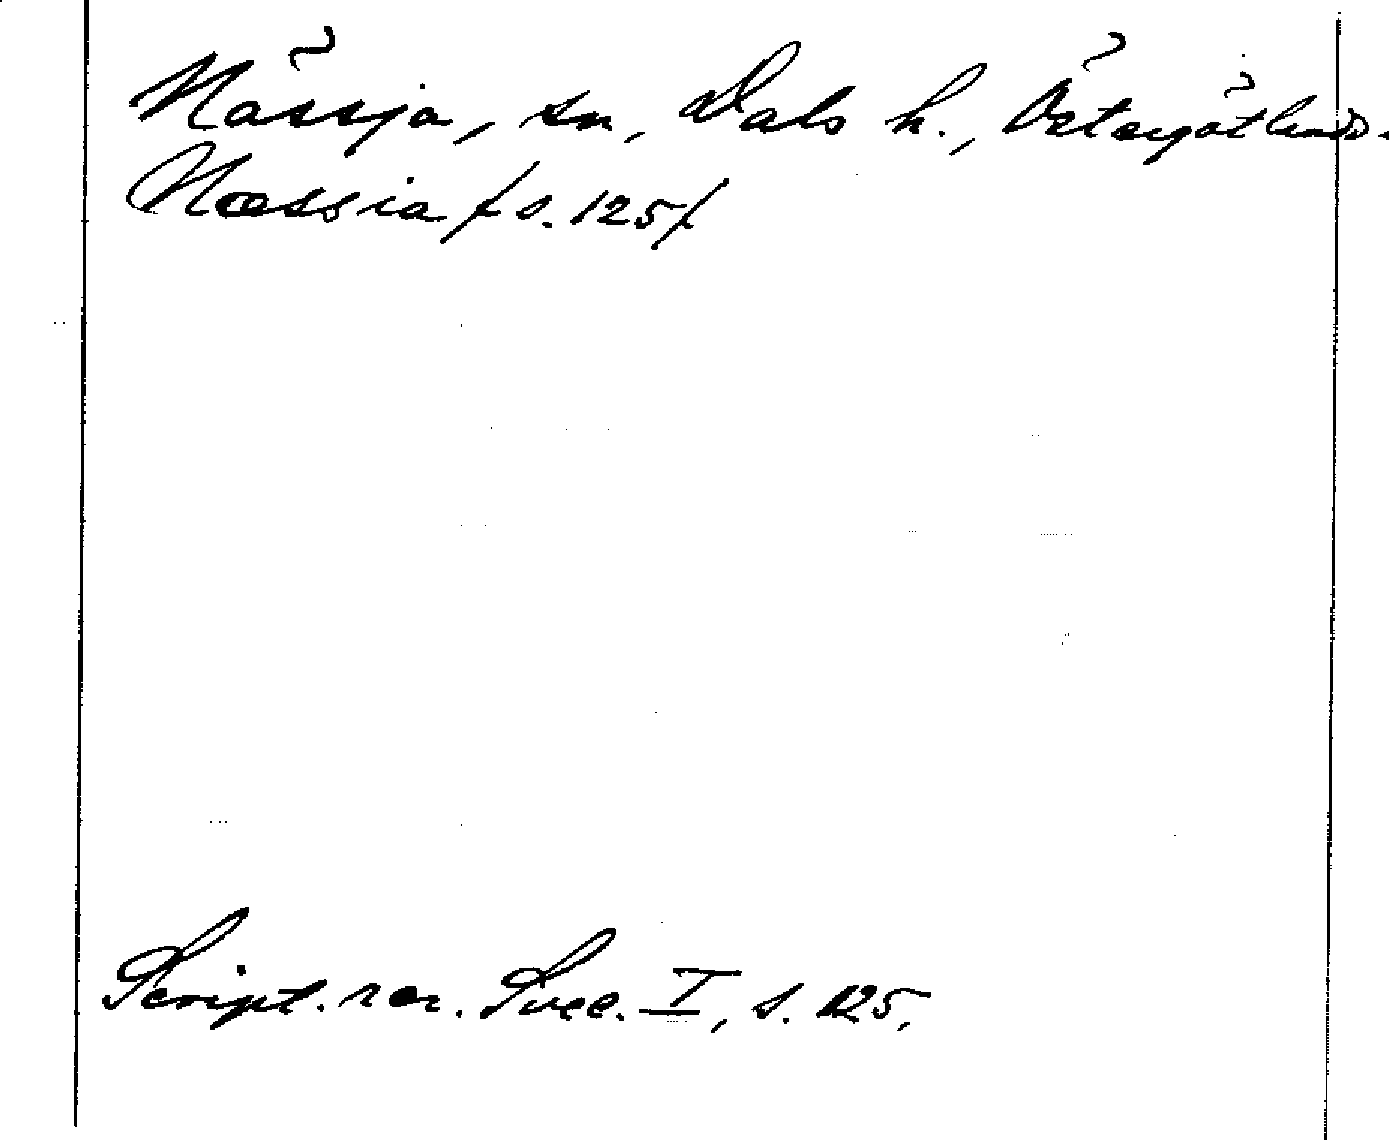 Nässja, sn, Dals h., Östergötlands.
Næssia /s. 125/
Script. rer. Svec. I, s. 125.